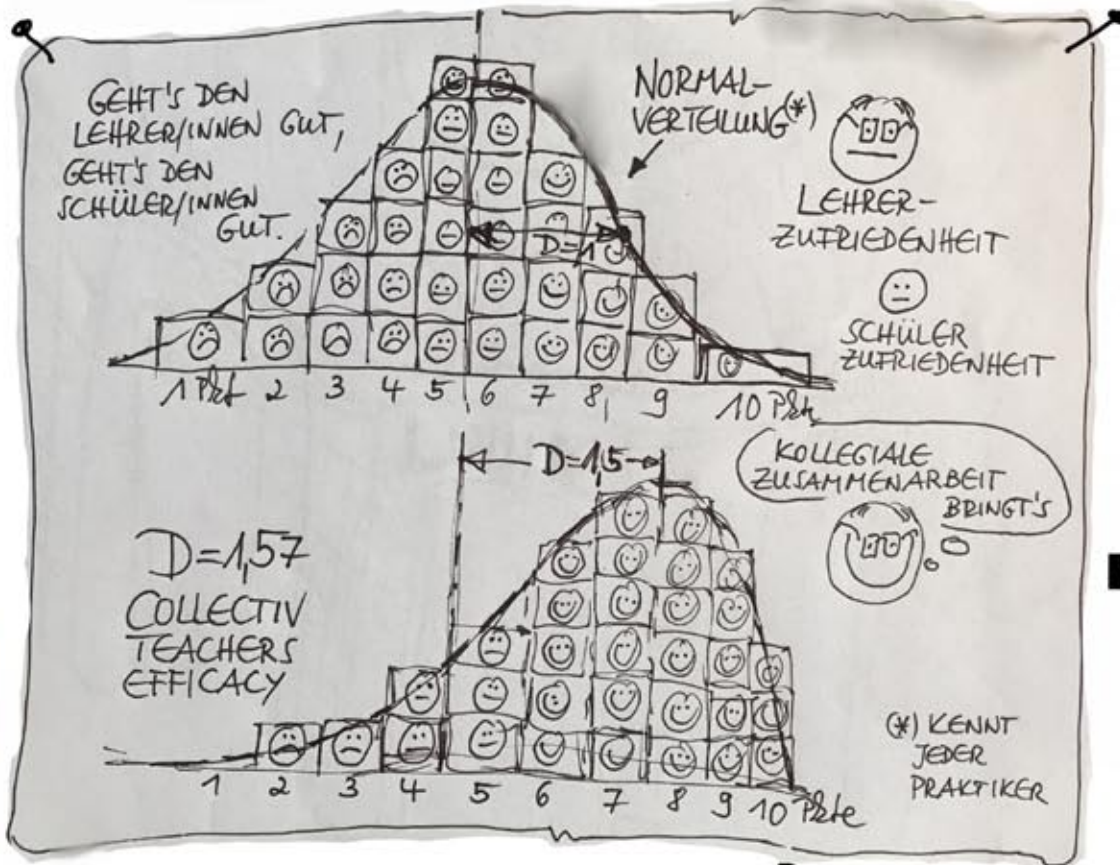 GEHT'S DEN
LEHRER/INNEN GUT,
GEHT'S DEN
SCHÜLER/INNEN
GUT.
NORMAL-
VERTEILUNG(*)
LEHRER-
ZUFRIEDENHEIT
SCHÜLER
ZUFRIEDENHEIT
D=1
1 Pkt 2 3 4 5 6 7 8 9 10 Pkte
D=1,5
KOLLEGIALE
ZUSAMMENARBEIT
BRINGT'S
D=1,57
COLLECTIV
TEACHERS
EFFICACY
(*) KENNT
JEDER
PRAKTIKER
1 2 3 4 5 6 7 8 9 10 Pkte